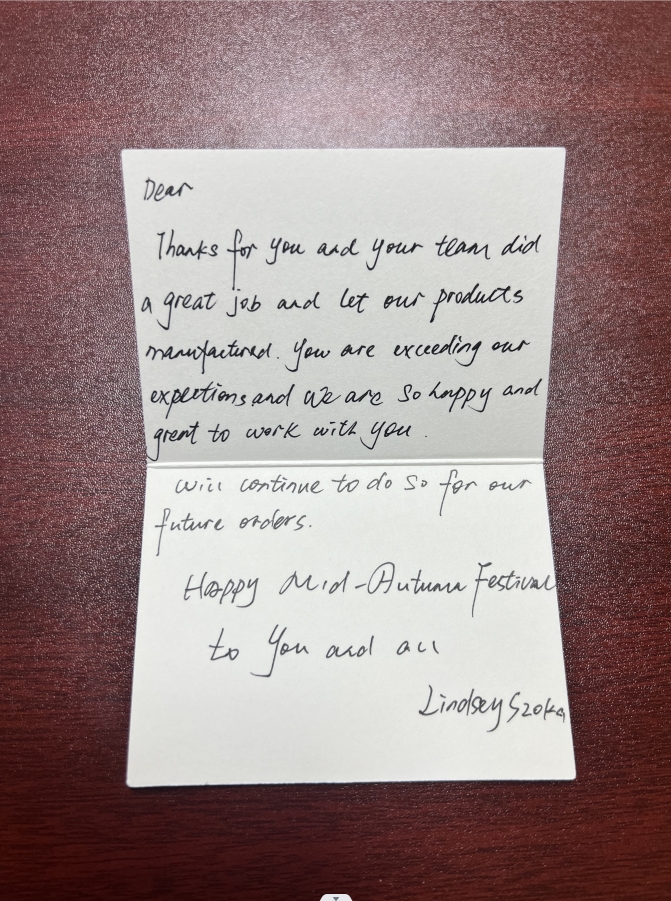 Dear
Thanks for you and your team did
a great job and let our products
manufactured. You are exceeding our
expections and We are So happy and
great to work with you.
will continue to do So for our
future orders.
Happy Mid-Autumn Festival
to You and all
Lindsey Szoka